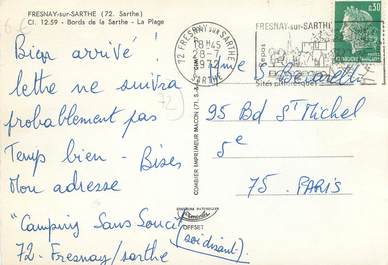 FRESNAY-sur-SARTHE (72. Sarthe)
Cl. 12.59 - Bords de la Sarthe - La Plage
Bien arrivé !
lettre ne suivra
probablement pas
Temps bien - Bises
Mon adresse
"Camping Sans Souci"
(soi disant)
72 - Fresnay/sarthe
72 FRESNAY-SUR-SARTHE
18H45
28-7
1972
SARTHE
FRESNAY-SUR-SARTHE
Repos
Sites pittoresques
0,30
COMBIER IMPRIMEUR MACON (71, S.-
OFFSET
95 Bd St Michel
5e
75 - PARIS